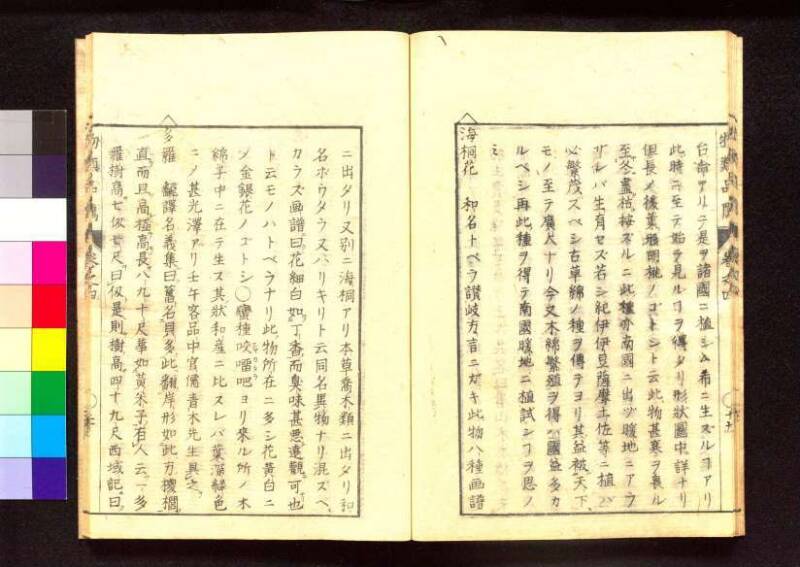 台命アリテ是ヲ諸國ニ植シム希ニ生スルヿアリ
此時ニ至テ始テ見ルヿヲ得タリ形狀圖中ニ詳ナリ
但長メ後葉形胡桃ノゴトシト云此物甚寒ヲ畏ル
至冬盡枯按ズルニ此種亦南國ニ出ヅ暖地ニアラ
ザレバ生育セズ若シ紀伊伊豆薩摩土佐等ニ植バ
必繁茂スベシ古草綿ノ種ヲ傳テヨリ其益被天下
モノ至テ廣大ナリ今又木綿繁殖ヲ得バ國益多カ
ルベシ再此種ヲ得テ南國暖地ニ植試シヿヲ思ノ
ミ
海桐花 和名トベラ讃岐方言ニガキ此物八種画譜
ニ出タリ又別ニ海桐アリ本草喬木類ニ出タリ和
名ボウタラ又ハリキリト云同名異物ナリ混ズベ
カラズ画譜曰花細白如丁香而臭味甚悪遠觀可也
ト云モノハトベラナリ此物所在ニ多シ花黄白ニ
ノ金銀花ノゴトシ〇蠻種咬𠺕吧ヨリ來ル所ノ木
綿子中ニ在テ生ス其狀和産ニ比スレバ葉濶緑色
ニノ甚光澤アリ壬午客品中官儒青木先生具之
多羅 飜譯名義集曰舊名貝多此飜岸形如此方椶櫚
直而且高極高長八九十尺華如黃米子有人云一多
羅樹高七仭七尺曰仭是則樹高四十九尺西域記曰